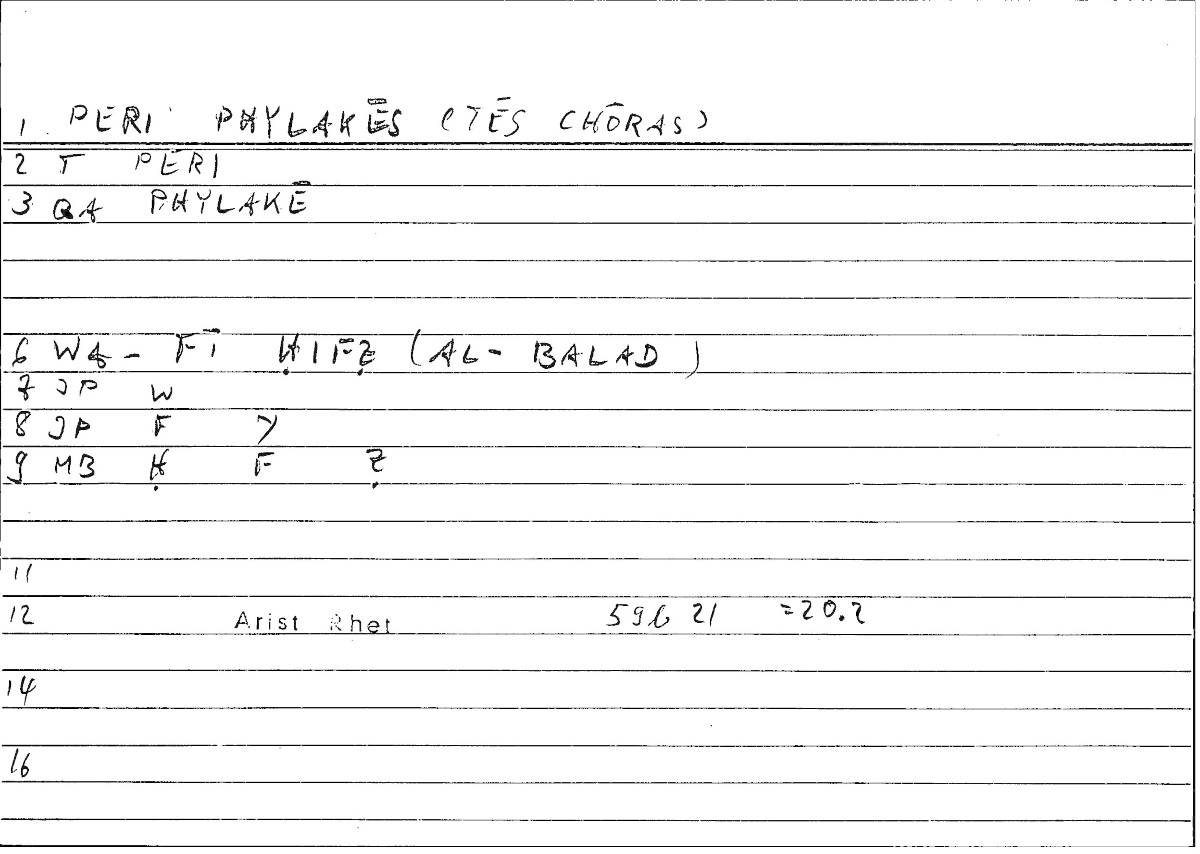 1 PERI PHYLAKĒS (TĒS CHŌRAS)
2 T PERI
3 QA PHYLAKĒ
6 WA- FĪ ḤIFẒ (AL- BALAD)
7 JP W
8 JP F Y
9 MB Ḥ F Ẓ
11
12 Arist Rhet 59b 21 =20.2
14
16